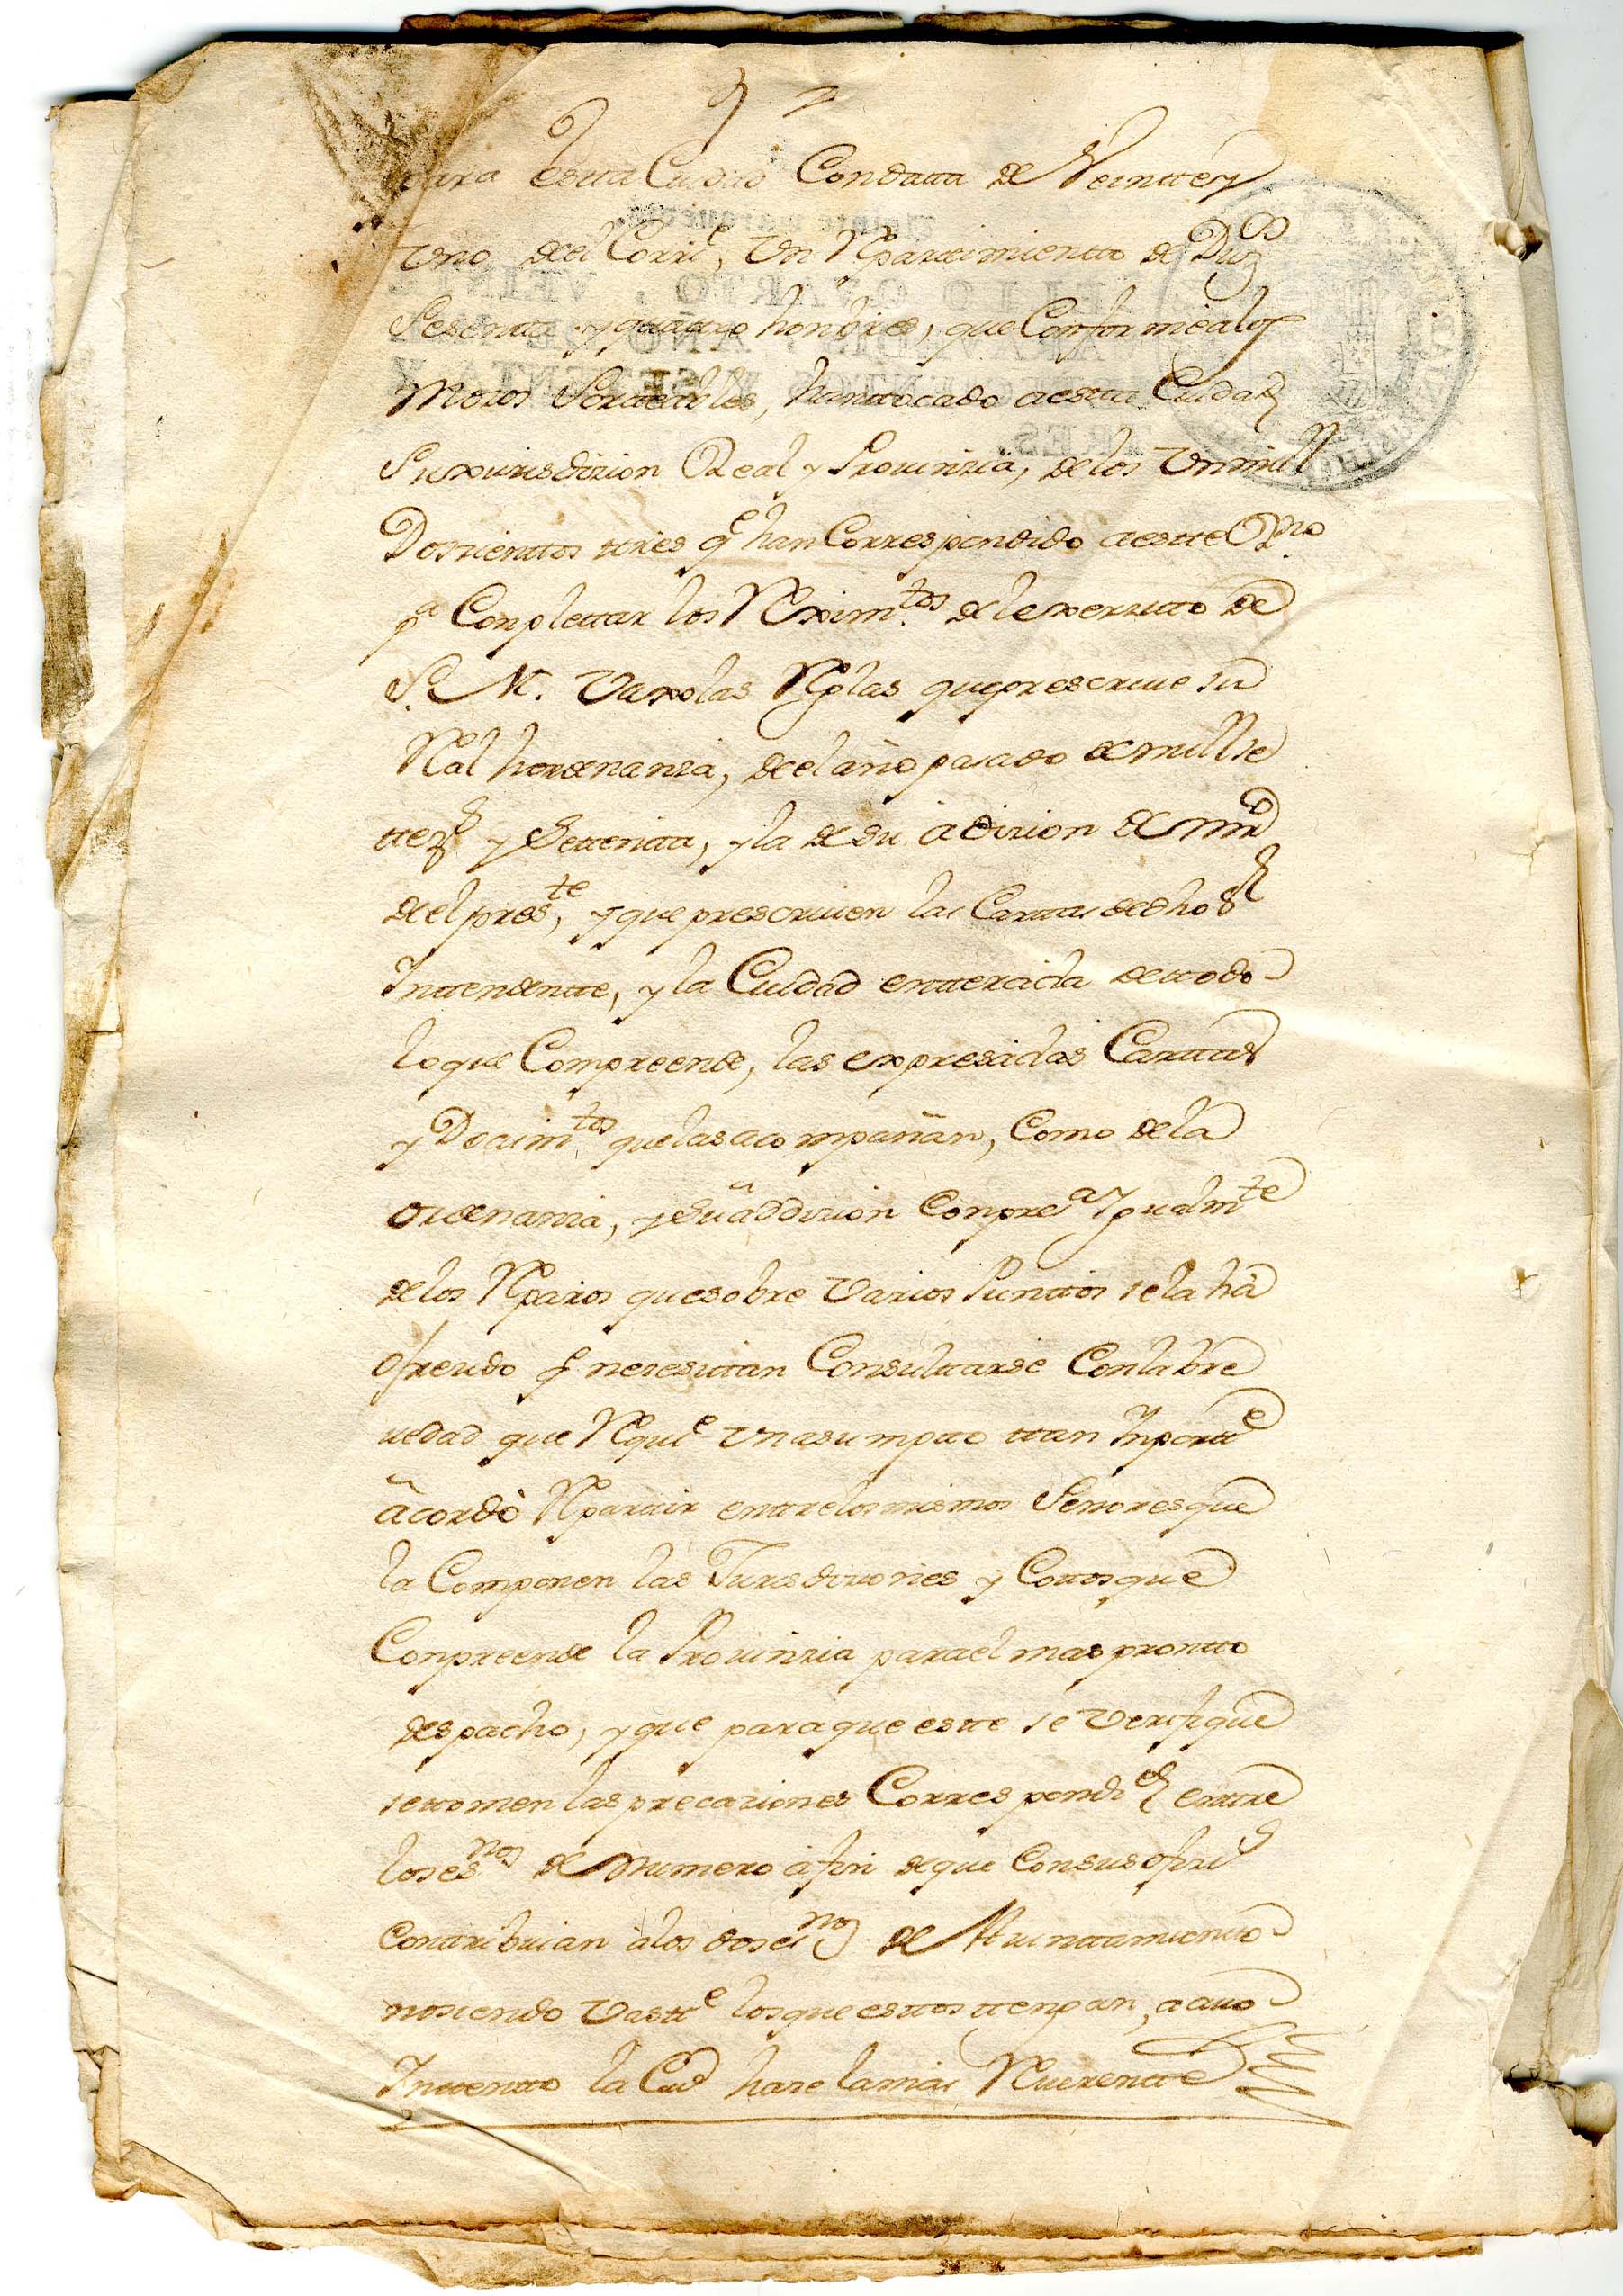 para estta Ciudad Condatta de Veinttey
uno del Corrte, Un Repartimientto de Dzos
Sesentta y quattro hombres, que Conforme a los
Mozos Sorteables, han tocado a estta Ciudad
Su Jurisdizion Real y Provinzia, de los Un mill
Doszienttos ttres qe han Correspondido a estte Rno
pa Conplettar los Reximtos del exerzitto de
S. M. Vaxo las Reglas que prescrive su
Real hordenanza, de el año pasado de mill Se
ttezs y Settentta, y la de su adizion de mzo
de el preste, y que prescriven las Carttas de dho Sr
Inttendentte, y la Ciudad entterada de ttodo
lo que Compreende, las expresadas Carttas
y Docum.tos que las acompañan, Como de la
ordenanza, y Su addizion Conprea Igualmte
de los Reparos que sobre Varios Punttos se la hà
ofrezido qe nezesittan Consulttarse Con la bre
vedad que Requie Un asumptto ttan Inportte
âcordò Reparttir enttre los mismos Señores que
la Componen las Jurisdiziones y Cottos que
Conpreende la Provinzia para el mas prontto
despacho, y que para que estte se Verifique
se ttomen las precauziones Correspondies enttre
los esnos de Numero a fin de que Con sus ofizs
Conttribuian â los dos esnos de Aiunttamientto
no siendo Vastte los que esttos ttengan, a cuio
Inttentto la Ciud haze la mas Reverentte